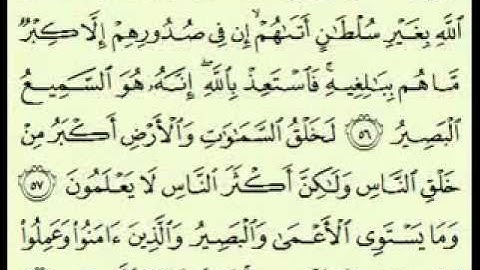 ٱللَّهِ بِغَيْرِ سُلْطَٰنٍ أَتَىٰهُمْ ۙ إِن فِى صُدُورِهِمْ إِلَّا كِبْرٌ
مَّا هُم بِبَٰلِغِيهِ ۚ فَٱسْتَعِذْ بِٱللَّهِ ۖ إِنَّهُۥ هُوَ ٱلسَّمِيعُ
ٱلْبَصِيرُ ٥٦ لَخَلْقُ ٱلسَّمَٰوَٰتِ وَٱلْأَرْضِ أَكْبَرُ مِنْ
خَلْقِ ٱلنَّاسِ وَلَٰكِنَّ أَكْثَرَ ٱلنَّاسِ لَا يَعْلَمُونَ ٥٧
وَمَا يَسْتَوِى ٱلْأَعْمَىٰ وَٱلْبَصِيرُ وَٱلَّذِينَ ءَامَنُوا۟ وَعَمِلُوا۟